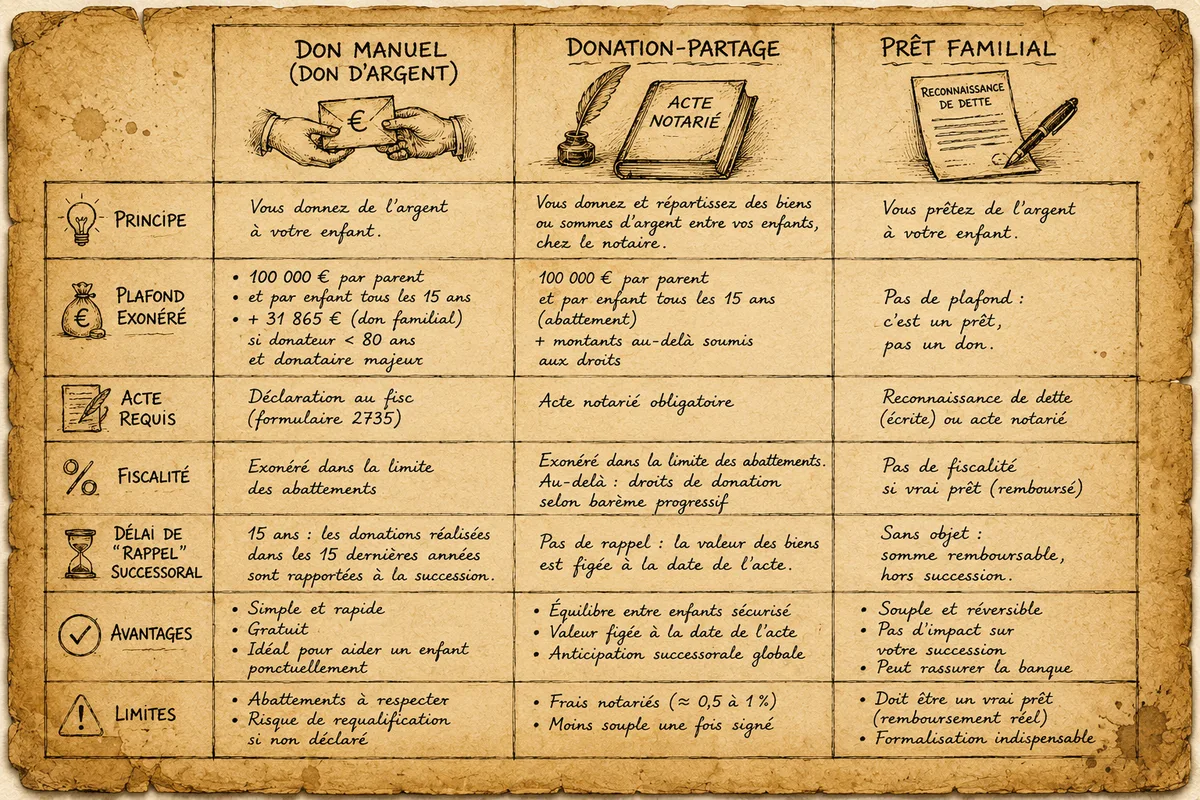 DON MANUEL
(DON D'ARGENT)
€
DONATION-PARTAGE
ACTE
NOTARIÉ
PRÊT FAMILIAL
RECONNAISSANCE
DE DETTE
PRINCIPE
Vous donnez de l'argent
à votre enfant.
Vous donnez et répartissez des biens
ou sommes d'argent entre vos enfants,
chez le notaire.
Vous prêtez de l'argent
à votre enfant.
€
PLAFOND
EXONÉRÉ
• 100 000 € par parent
• et par enfant tous les 15 ans
• + 31 865 € (don familial)
si donateur < 80 ans
et donataire majeur
100 000 € par parent
et par enfant tous les 15 ans
(abattement)
+ montants au-delà soumis
aux droits
Pas de plafond :
c'est un prêt,
pas un don.
ACTE
REQUIS
Déclaration au fisc
(formulaire 2735)
Acte notarié obligatoire
Reconnaissance de dette
(écrite) ou acte notarié
%
FISCALITÉ
Exonéré dans la limite
des abattements
Exonéré dans la limite des abattements.
Au-delà : droits de donation
selon barème progressif
Pas de fiscalité
si vrai prêt (remboursé)
DÉLAI DE
"RAPPEL"
SUCCESSORAL
15 ans : les donations réalisées
dans les 15 dernières années
sont rapportées à la succession.
Pas de rappel : la valeur des biens
est figée à la date de l'acte.
Sans objet :
somme remboursable,
hors succession.
AVANTAGES
• Simple et rapide
• Gratuit
• Idéal pour aider un enfant
ponctuellement
• Équilibre entre enfants sécurisé
• Valeur figée à la date de l'acte
• Anticipation successorale globale
• Souple et réversible
• Pas d'impact sur
votre succession
• Peut rassurer la banque
LIMITES
• Abattements à respecter
• Risque de requalification
si non déclaré
• Frais notariés (≈ 0,5 à 1 %)
• Moins souple une fois signé
• Doit être un vrai prêt
(remboursement réel)
• Formalisation indispensable